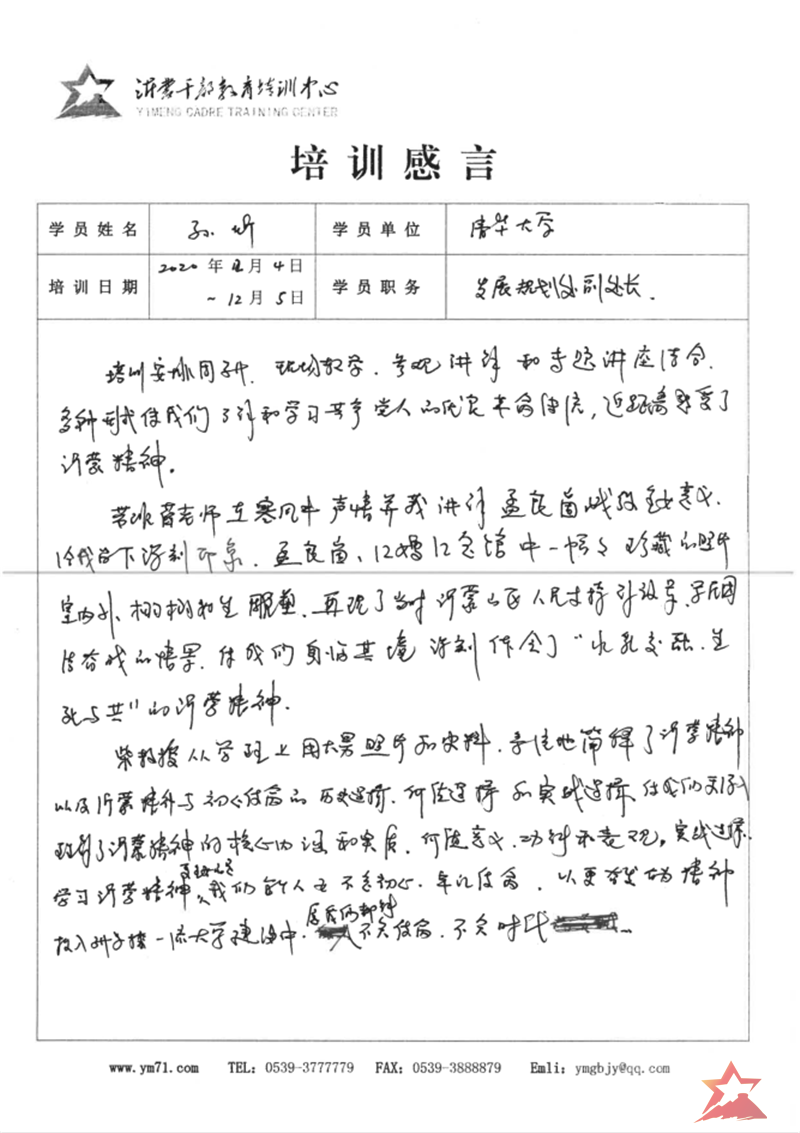 沂蒙干部教育培训中心
YIMENG CADRE TRAINING CENTER
培训感言
学员姓名 孙 学员单位 清华大学
培训日期 2020年12月4日
~12月5日 学员职务 发展规划处副处长.
培训安排周到. 现场教学、参观讲解和专题讲座结合.
多种形式使我们了解和学习共产党人的优良革命传统,近距离感受了
沂蒙精神。
老师在寒风中声情并茂讲解孟良崮战役的意义.
给我留下深刻印象. 孟良崮、红嫂纪念馆中一幅幅珍藏的照片
室内外、栩栩如生雕塑. 再现了当时沂蒙山区人民支持解放军、
的情景. 使我们身临其境 深刻体会了“水乳交融、生
死与共”的沂蒙精神.
教授从学理上用大量照片和史料. 系统地阐释了沂蒙精神
以及沂蒙精神与初心使命的历史选择. 价值选择和实践选择. 使我们更深入
理解了沂蒙精神的核心内涵和实质. 价值意义.
学习沂蒙精神 我们 不忘初心. 牢记使命. 以更 精神
投入 一流大学建设中. 不负使命. 不负时代
www.ym71.com TEL: 0539-3777779 FAX: 0539-3888879 Emli: ymgbjy@qq.com